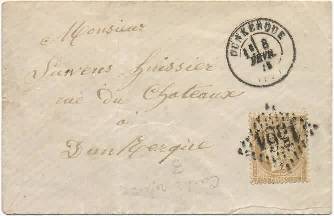 Monsieur
Lawens huissier
rue du Chateaux
à
DunKerque
DUNKERQUE
8
FEVR.
1561